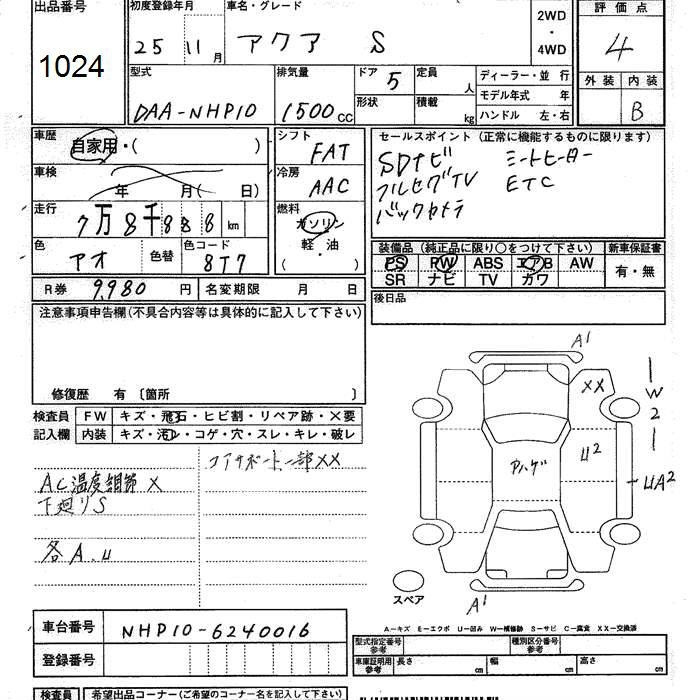 出品番号
1024
初度登録年月
25 11月
車名・グレード
アクア S
2WD
・
4WD
評価点
4
外装 内装
B
型式
DAA-NHP10
排気量
1500cc
ドア 5
形状
定員 人
積載 kg
ディーラー・並 行
モデル年式 年
ハンドル 左・右
車歴
自家用・( )
車検
年 月( 日)
走行
7万8千888km
色
アオ
色替
色コード
8T7
シフト
FAT
冷房
AAC
燃料
ガソリン
軽・油
( )
セールスポイント(正常に機能するものに限ります)
SDナビ シートヒーター
フルセグTV ETC
バックカメラ
装備品(純正品に限り○をつけて下さい)
PS PW ABS エアB AW
SR ナビ TV ガワ
新車保証書
有・無
R券 9,980円
名変期限 月 日
後日品
注意事項申告欄(不具合内容等は具体的に記入して下さい)
修復歴 有〔箇所 〕
検査員
記入欄
FW キズ・飛石・ヒビ割・リペア跡・×要
内装 キズ・汚レ・コゲ・穴・スレ・キレ・破レ
コアサポート一部XX
AC温度調節 ×
下廻りS
各A.U
A1
XX
1
W
2
1
U2
UA2
Aハゲ
A1
スペア
A-キズ E-エクボ U-凹み W-補修跡 S-サビ C-腐食 XX-交換済
車台番号 NHP10-6240016
登録番号
型式指定番号
参考
種別区分番号
参考
車庫証明用
参考
長さ cm
幅 cm
高さ cm
検査員
希望出品コーナー(ご希望のコーナー名を記入して下さい)